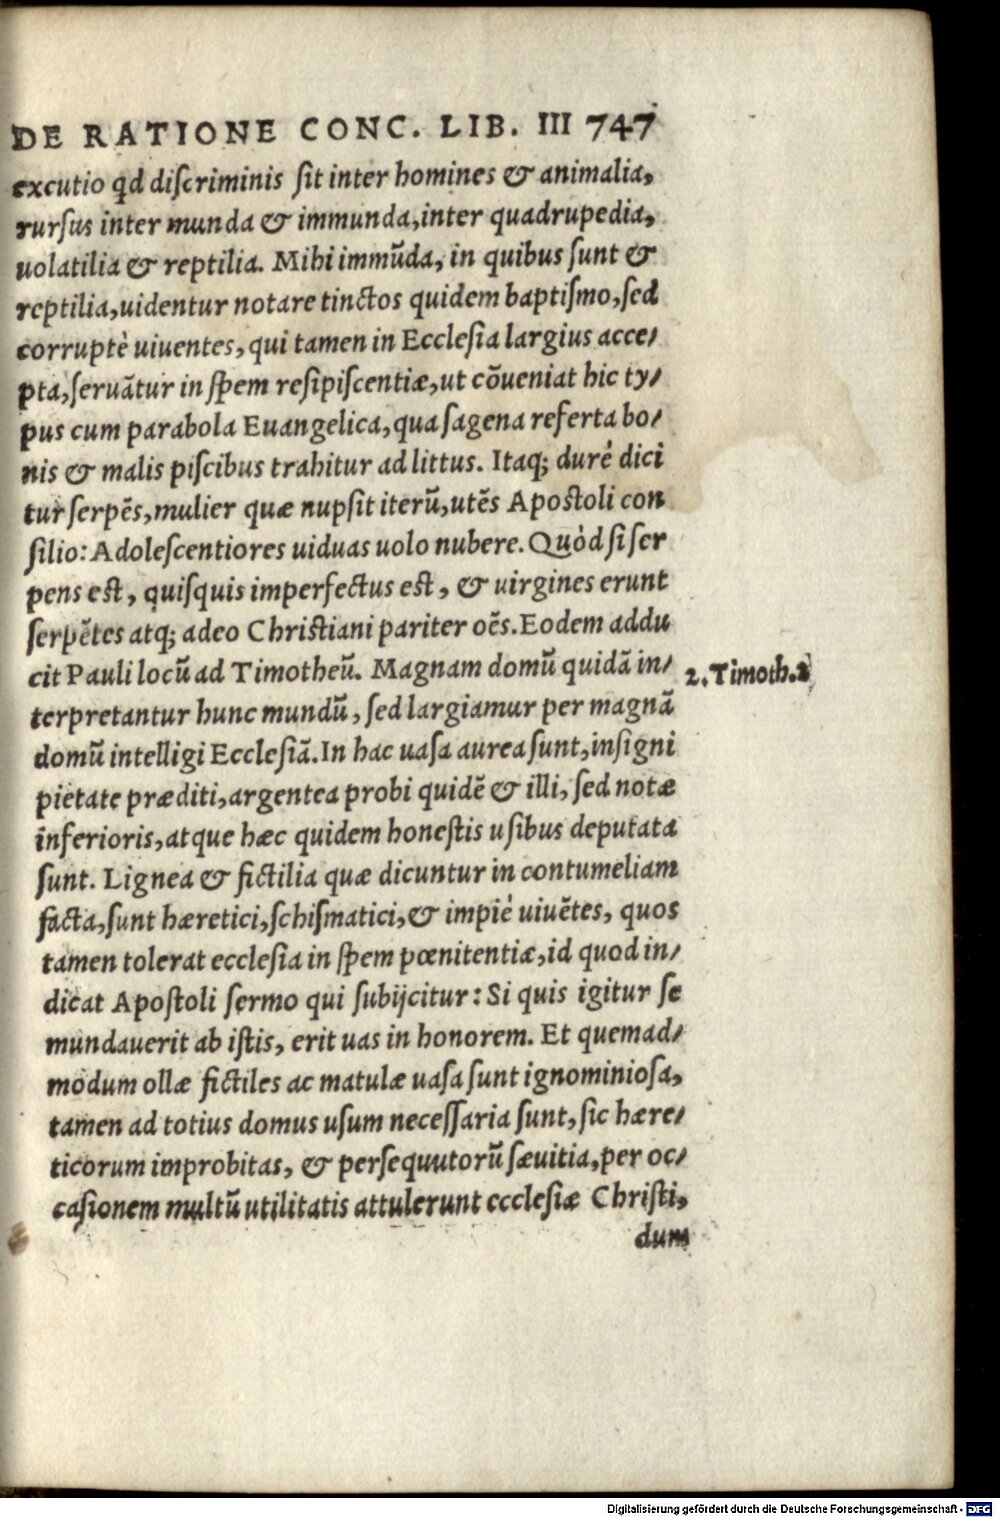 DE RATIONE CONC. LIB. III 747
excutio qd diſcriminis ſit inter homines & animalia,
rurſus inter munda & immunda, inter quadrupedia,
uolatilia & reptilia. Mihi immũda, in quibus ſunt &
reptilia, uidentur notare tinctos quidem baptiſmo, ſed
corruptè uiuentes, qui tamen in Eccleſia largius acce/
pta, ſeruãtur in ſpem reſipiſcentiæ, ut cõueniat hic ty/
pus cum parabola Euangelica, qua ſagena referta bo/
nis & malis piſcibus trahitur ad littus. Itaq; durè dici
tur ſerpẽs, mulier quæ nupſit iterũ, utẽs Apoſtoli con
ſilio: Adoleſcentiores uiduas uolo nubere. Quòd ſi ſer
pens eſt, quiſquis imperfectus eſt, & uirgines erunt
ſerpẽtes atq; adeo Chriſtiani pariter oẽs. Eodem addu
cit Pauli locũ ad Timotheũ. Magnam domũ quidã in/
2. Timoth. 2
terpretantur hunc mundũ, ſed largiamur per magnã
domũ intelligi Eccleſiã. In hac uaſa aurea ſunt, inſigni
pietate præditi, argentea probi quidẽ & illi, ſed notæ
inferioris, atque hæc quidem honeſtis uſibus deputata
ſunt. Lignea & fictilia quæ dicuntur in contumeliam
facta, ſunt hæretici, ſchiſmatici, & impiè uiuẽtes, quos
tamen tolerat eccleſia in ſpem pœnitentiæ, id quod in/
dicat Apoſtoli ſermo qui ſubijcitur: Si quis igitur ſe
mundauerit ab iſtis, erit uas in honorem. Et quemad/
modum ollæ fictiles ac matulæ uaſa ſunt ignominioſa,
tamen ad totius domus uſum neceſſaria ſunt, ſic hære/
ticorum improbitas, & perſequutorũ ſæuitia, per oc/
caſionem multũ utilitatis attulerunt eccleſiæ Chriſti,
dum
Digitalisierung gefördert durch die Deutsche Forschungsgemeinschaft - DFG